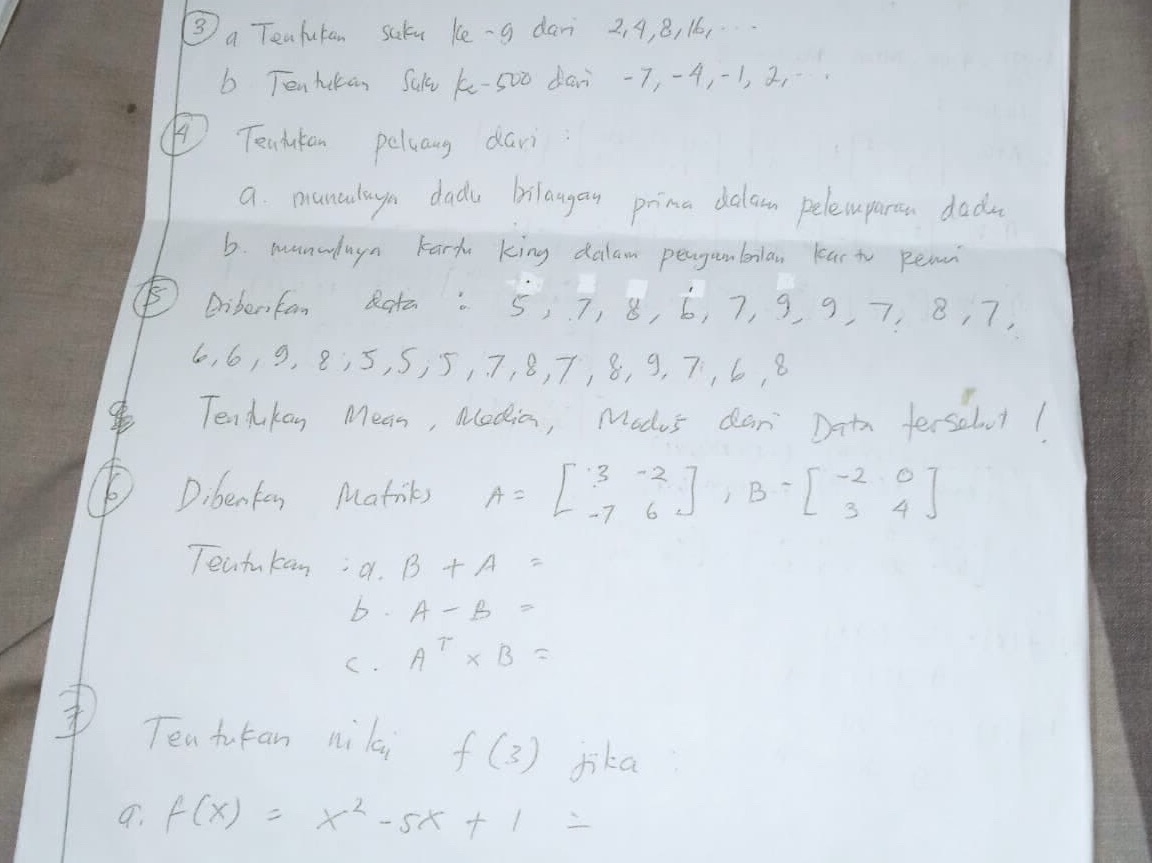 3 a Tentukan suku ke-9 dari 2,4,8,16,...
b Tentukan suku ke-500 dari -7, -4, -1, 2,...
4 Tentukan peluang dari :
a. munculnya dadu bilangan prima dalam pelemparan dadu
b. munculnya kartu king dalam pengambilan kartu Remi
5 Diberikan data : 5, 7, 8, 6, 7, 9, 9, 7, 8, 7,
6, 6, 9, 8, 5, 5, 5, 7, 8, 7, 8, 9, 7, 6, 8
Tentukan Mean, Median, Modus dari Data tersebut !
6 Diberikan Matriks A = [3 -2; -7 6], B = [-2 0; 3 4]
Tentukan : a. B + A =
b. A - B =
c. A^T x B =
7 Tentukan nilai f(3) jika :
a. f(x) = x² - 5x + 1 =